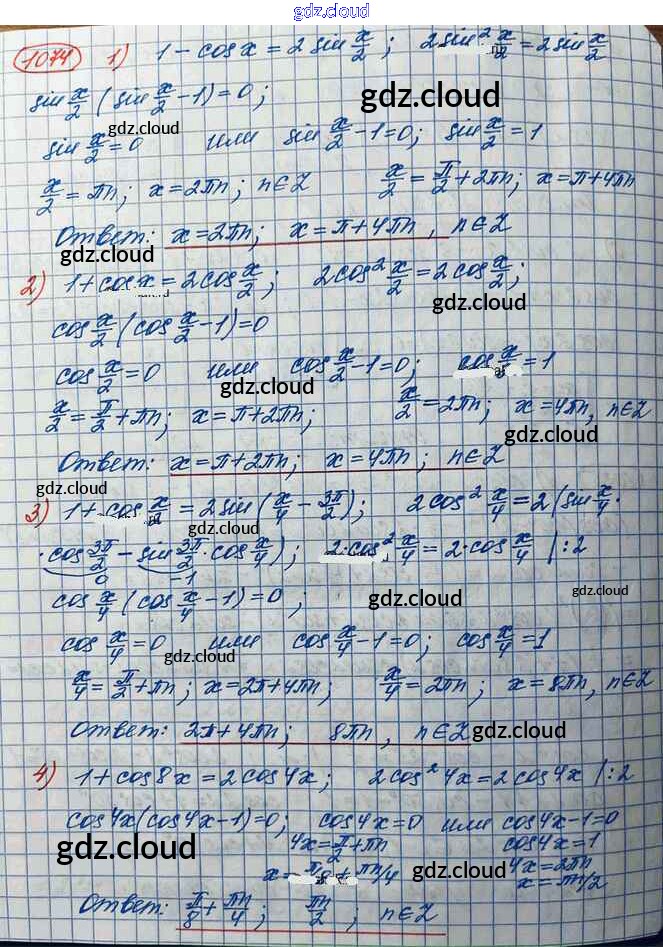 gdz.cloud
1074 1) 1 - cos x = 2 sin x/2 ; 2 sin² x/2 = 2 sin x/2
sin x/2 (sin x/2 - 1) = 0 ;
gdz.cloud
sin x/2 = 0 или sin x/2 - 1 = 0; sin x/2 = 1
gdz.cloud
x/2 = πn; x = 2πn; n∈Z x/2 = π/2 + 2πn; x = π + 4πn
gdz.cloud
Ответ: x = 2πn; x = π + 4πn , n∈Z
gdz.cloud
2) 1 + cos x = 2 cos x/2 ; 2 cos² x/2 = 2 cos x/2 ;
gdz.cloud
cos x/2 (cos x/2 - 1) = 0
cos x/2 = 0 или cos x/2 - 1 = 0; cos x/2 = 1
gdz.cloud
x/2 = π/2 + πn; x = π + 2πn; x/2 = 2πn; x = 4πn, n∈Z
gdz.cloud
gdz.cloud
Ответ: x = π + 2πn; x = 4πn ; n∈Z
3) 1 + cos x/2 = 2 sin (x/4 - 3π/2); 2 cos² x/4 = 2 (sin x/4 ·
gdz.cloud
· cos 3π/2 - sin 3π/2 · cos x/4); 2·cos² x/4 = 2·cos x/4 /:2
0 -1
cos x/4 (cos x/4 - 1) = 0 ;
gdz.cloud
cos x/4 = 0 или cos x/4 - 1 = 0; cos x/4 = 1
gdz.cloud
x/4 = π/2 + πn; x = 2π + 4πn; x/4 = 2πn; x = 8πn, n∈Z
Ответ: 2π + 4πn; 8πn , n∈Z
gdz.cloud
4) 1 + cos 8x = 2 cos 4x; 2 cos² 4x = 2 cos 4x /:2
cos 4x (cos 4x - 1) = 0; cos 4x = 0 или cos 4x - 1 = 0
4x = π/2 + πn cos 4x = 1
gdz.cloud
gdz.cloud
x = π/8 + πn/4 4x = 2πn
x = πn/2
Ответ: π/8 + πn/4 ; πn/2 ; n∈Z
gdz.cloud